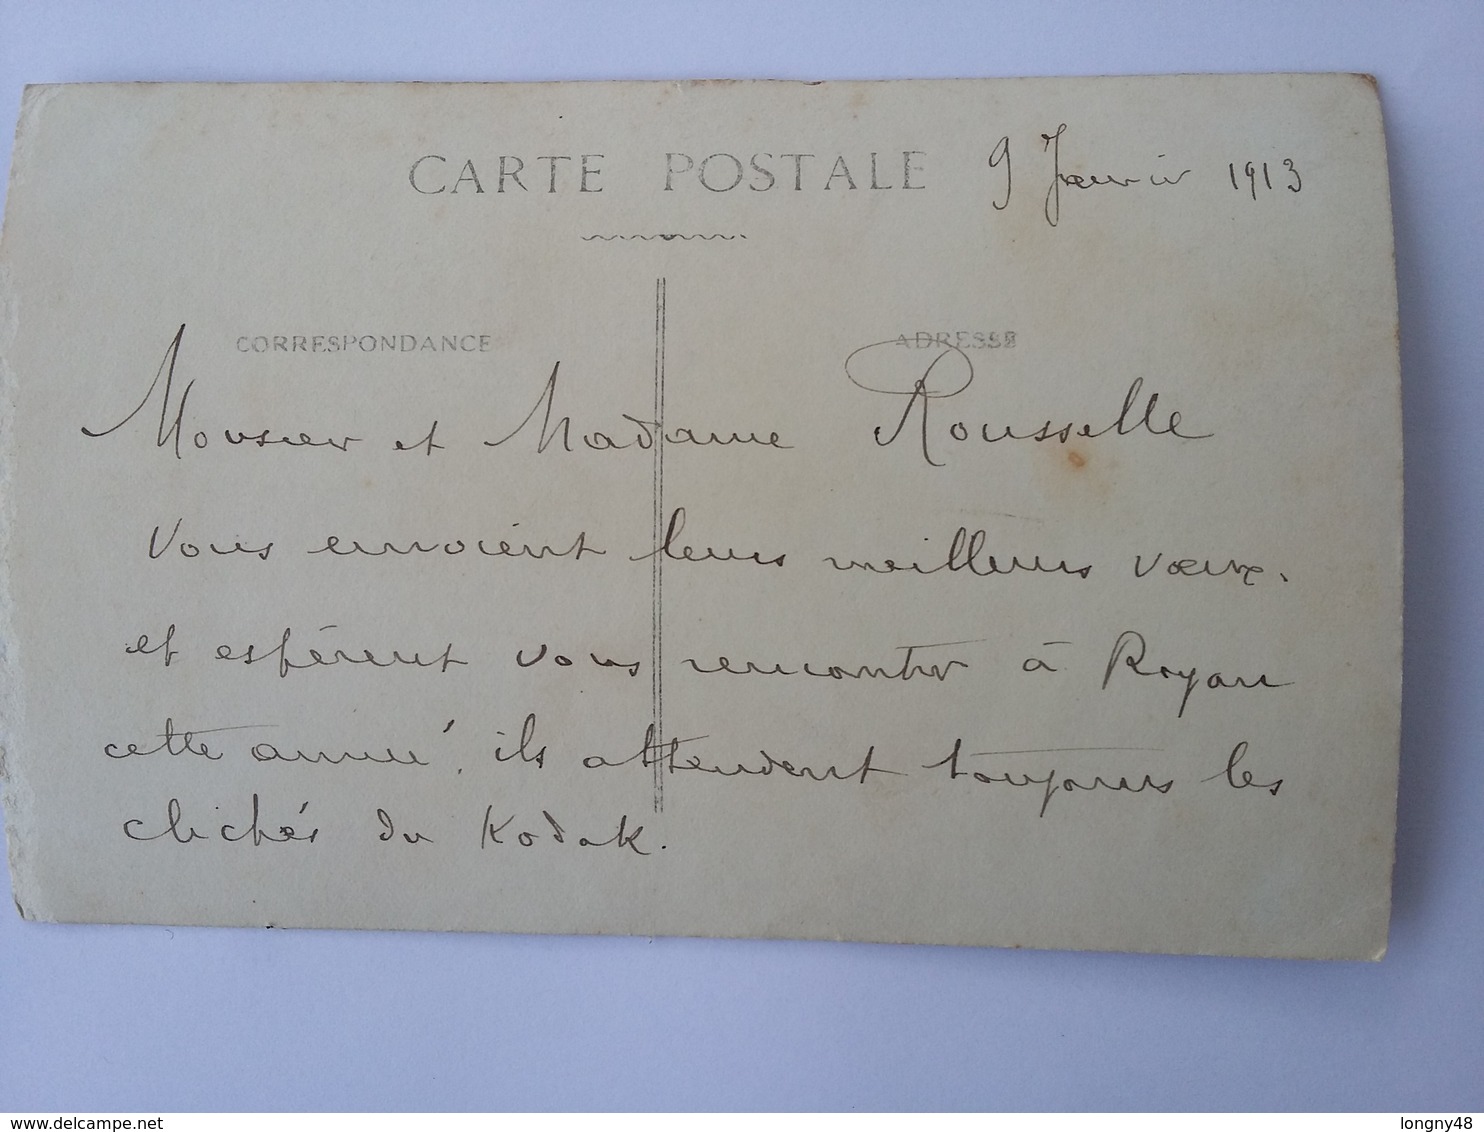 CARTE POSTALE 9 Janvier 1913
CORRESPONDANCE ADRESSE
Monsieur et Madame Rousselle
vous envoient leurs meilleurs vœux.
et espèrent vous rencontrer à Royan
cette année, ils attendent toujours les
clichés du Kodak.
delcampe.net
longny48